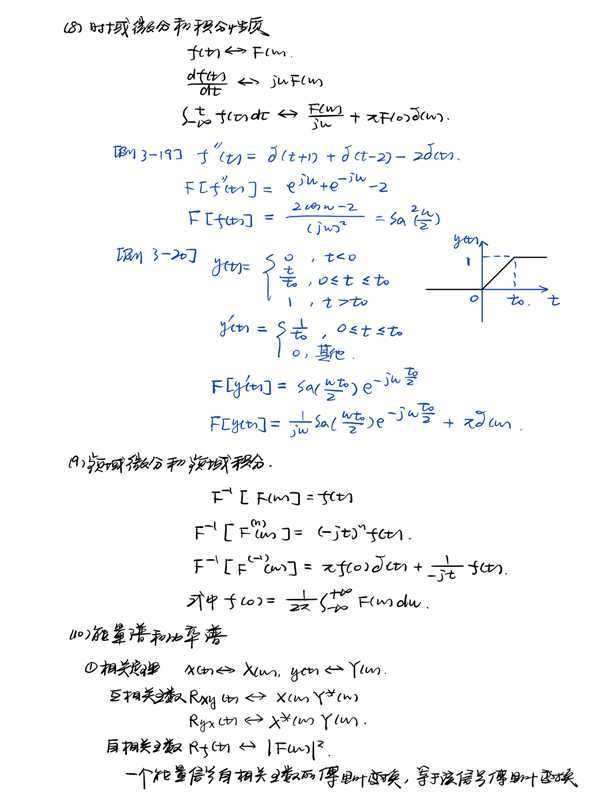 (8) 时域微分和积分性质
f(t) ↔ F(w).
df(t)/dt ↔ jwF(w)
∫_{-∞}^{t} f(t)dt ↔ F(w)/jw + πF(0)δ(w).
[例 3-19] f''(t) = δ(t+1) + δ(t-2) - 2δ(t).
F[f''(t)] = e^{jw} + e^{-jw} - 2
F[f(t)] = (2cosw-2)/(jw)² = Sa²(w/2)
[例 3-20] y(t) = { 0 , t<0
t/t₀ , 0≤t≤t₀
1 , t>t₀
y(t)
1
0 t₀. t
y'(t) = { 1/t₀ , 0≤t≤t₀
0, 其他.
F[y'(t)] = Sa(wt₀/2) e^{-jw t₀/2}
F[y(t)] = 1/jw Sa(wt₀/2) e^{-jw t₀/2} + πδ(w).
(9) 频域微分和频域积分.
F⁻¹[F(w)] = f(t)
F⁻¹[F^{(n)}(w)] = (-jt)ⁿ f(t).
F⁻¹[F^{(-1)}(w)] = πf(0)δ(t) + 1/(-jt) f(t).
式中 f(0) = 1/2π ∫_{-∞}^{+∞} F(w)dw.
(10) 能量谱和功率谱
①相关定理 x(t) ↔ X(w), y(t) ↔ Y(w).
互相关函数 Rxy(t) ↔ X(w)Y*(w)
Ryx(t) ↔ X*(w)Y(w).
自相关函数 Rf(t) ↔ |F(w)|².
一个能量信号自相关函数的傅里叶变换, 等于该信号傅里叶变换